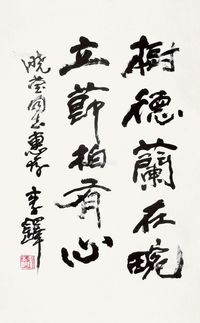 樹德蘭在畹
立節柏有心
曉瑩同志惠存 李鐸